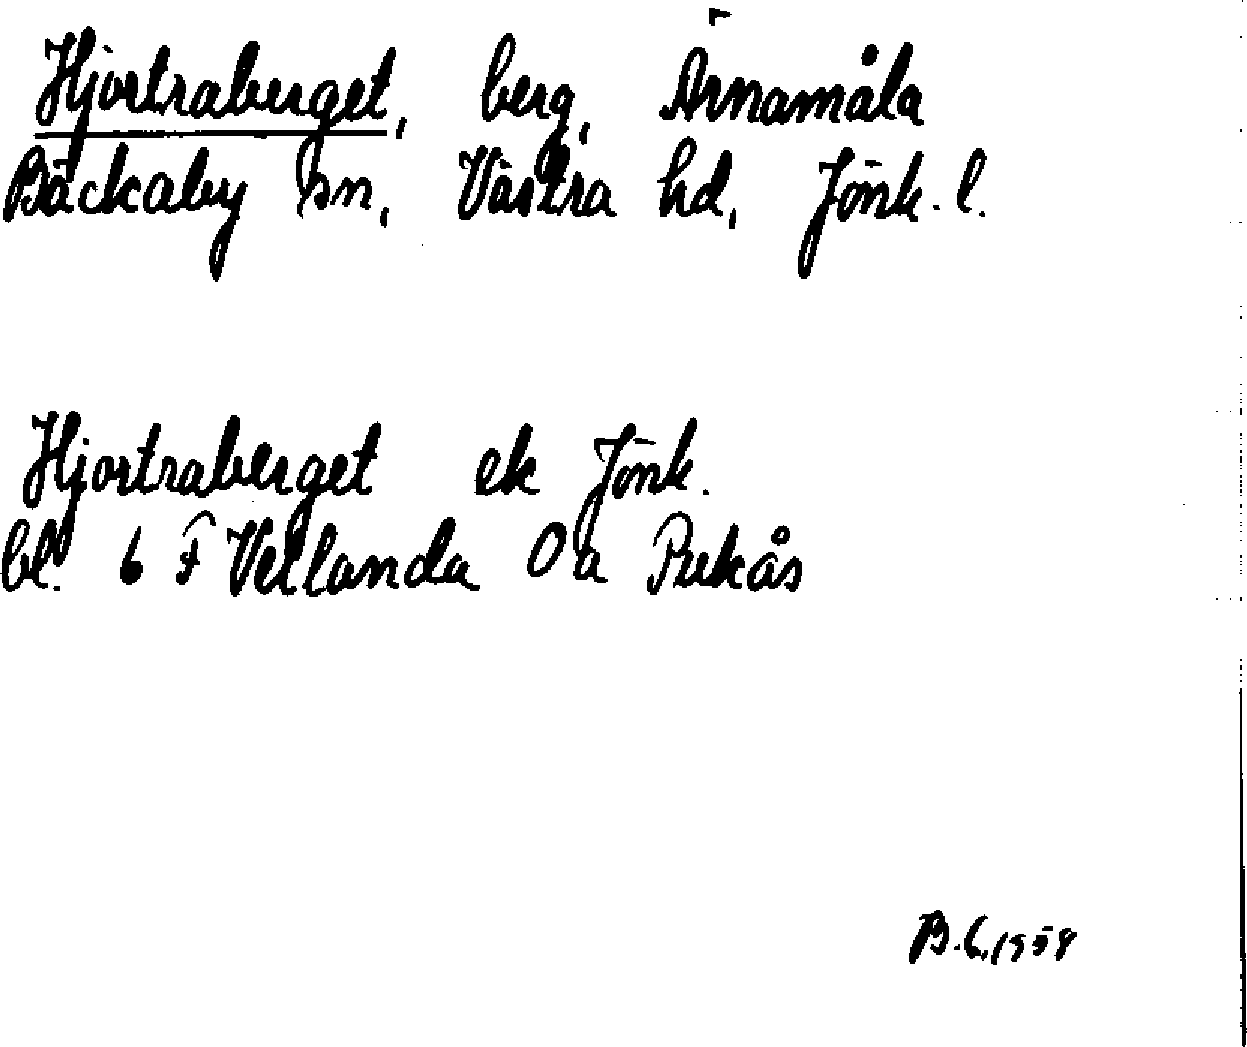 Hjortraberget, berg, Ärnamåla
Bäckaby sn, Västra hd, Jönk. l.
Hjortraberget ek Jönk.
bl. 6 F Vetlanda 0 a Pukås
B. 1958